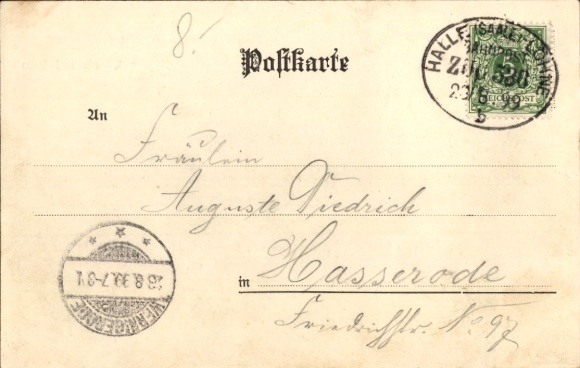 8.
Postkarte
HALLE (SAALE)-LÖHNE
BAHNPOST
ZUG 330
23 8 99
b
5
REICHSPOST
An
Fräulein
Auguste Diedrich
in Hasserode
Friedrichstr. No 97
WERNIGERODE
23.8.99.7-8